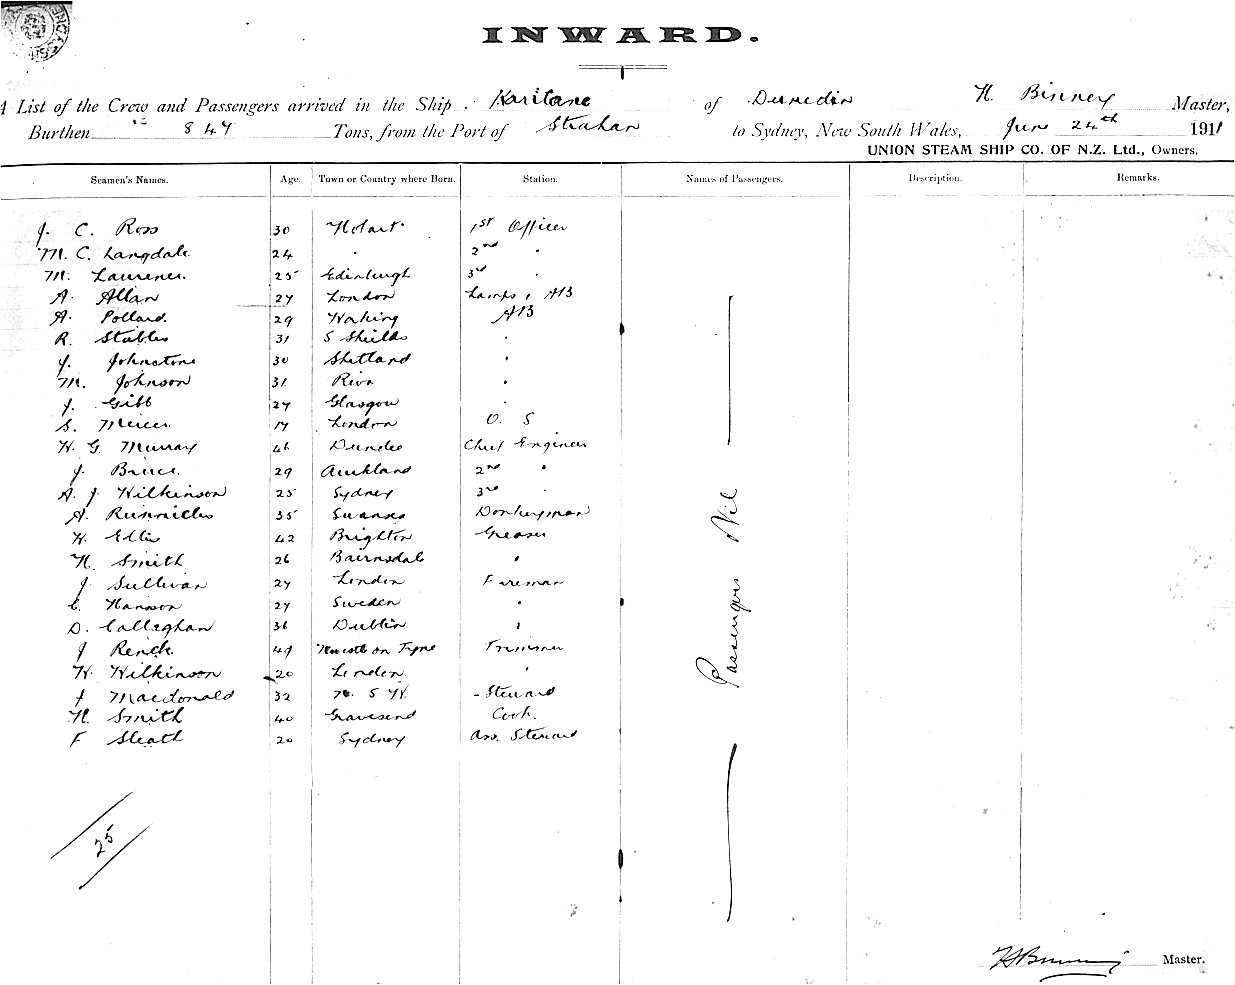 INWARD.
A List of the Crew and Passengers arrived in the Ship Karitane of Dunedin H. Binney Master,
Burthen 847 Tons, from the Port of Strahan to Sydney, New South Wales, June 24th 1911
UNION STEAM SHIP CO. OF N.Z. Ltd., Owners.
Seamen's Names. Age. Town or Country where Born. Station. Names of Passengers. Description. Remarks.
J. C. Ross 30 Hobart 1st Officer
M. C. Langdale 24 " 2nd "
M. Laurence 25 Edinburgh 3rd "
A. Allan 27 London Lamps, AB
A. Pollard. 29 Woking AB
R. Stables 31 S Shields "
J. Johnstone 30 Shetland "
M. Johnson 31 Riva "
J. Gibb 27 Glasgow "
S. Mercer 17 London O. S
W. G. Murray 46 Dundee Chief Engineer
J. Bruce. 29 Auckland 2nd "
A. J Wilkinson 25 Sydney 3rd "
A. Runnicles 35 Swansea Donkeyman
W. Ellis 42 Brighton Greaser
H. Smith 26 Bairnsdale "
J Sullivan 27 London Fireman
C. Hanson 27 Sweden "
D. Callaghan 36 Dublin "
J Renck 49 Newcastle on Tyne Trimmer
W. Wilkinson 20 London "
J Macdonald 32 N. S W. Steward
H. Smith 40 Gravesend Cook.
F Sleath 20 Sydney Ass. Steward
Passengers Nil
25
Master.